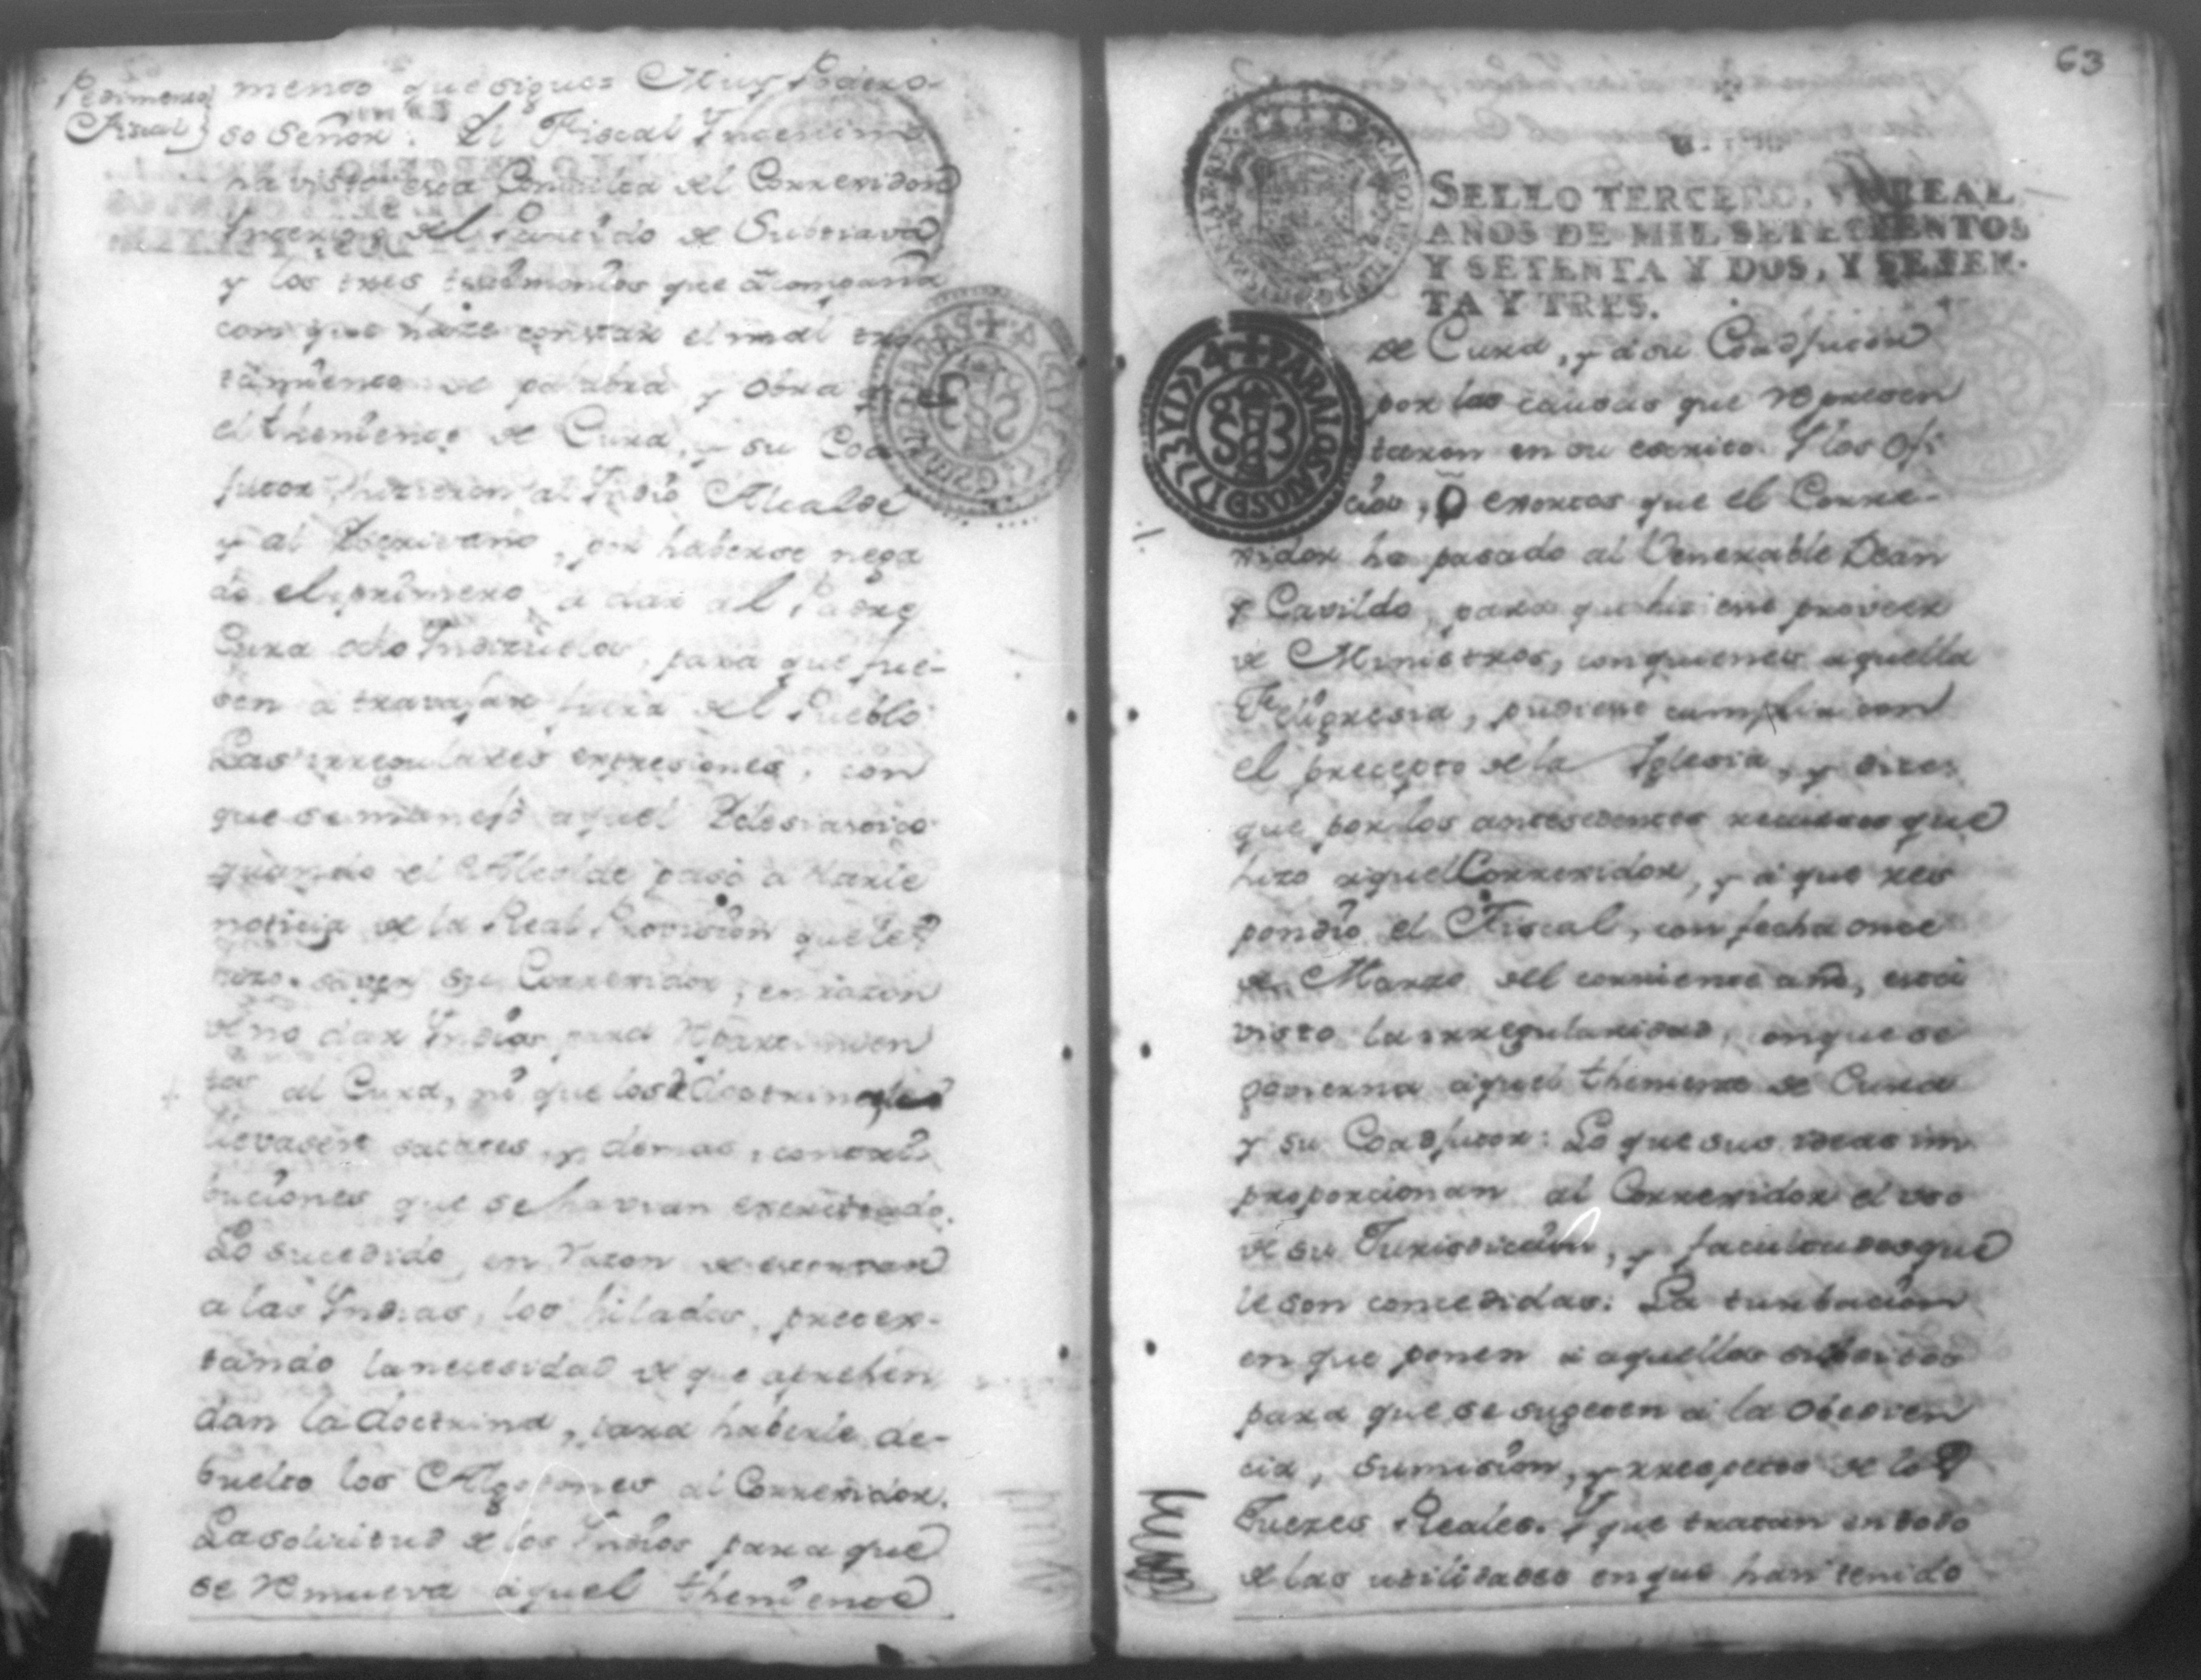 Pedimento
Fiscal
mento que sigue= Muy Podero-
so Señor. El Fiscal Interino
ha visto esta Consulta del Correxidor
Interino del Partido de Subtiava
y los tres testimonios que acompaña
con que haze constar el mal tra
tamiento de palabra y obra que
el theniente de Cura, y su Coad
jutor hizieron al Indio Alcalde
y al Escrivano, por haberse nega
do el primero a dar al Padre
Cura ocho Indizuelos, para que fue-
sen a travajar fuera del Pueblo
Las irregulares expresiones, con
que se manejó aquel Eclesiastico
quando el Alcalde pasó a darle
noticia de la Real Provision que le
hizo saver su Correxidor, en razon
de no dar Indios para Repartimien
tos al Cura, ni que los doctrineros
llevasen zacates, y demas, contri
buciones que se havian exerzitado.
Lo sucedido en razon de
a las Indias, los hilados, pretex-
tando la necesidad de que aprehen
dan la doctrina, para haberle de-
buelto los Algodones al Correxidor.
La solicitud de los Indios para que
se remueva aquel theniente
63
SELLO TERCERO, VN REAL
AÑOS DE MIL SETECIENTOS
Y SETENTA Y DOS, Y SETEN-
TA Y TRES.
de Cura, y a su Coadjutor
por las causas que represen
taron en su escrito. Y los ofi
cios, o exortos que el Corre-
xidor ha pasado al Venerable Dean
y Cavildo, para que hiziese proveer
de Ministros, con quienes aquella
Feligresia, pudiese cumplir con
el precepto de la Iglesia, y dize:
que por los antesedentes recursos que
hizo aquel Correxidor, y a que res
pondio el Fiscal, con fecha onze
de Marzo del corriente año, está
visto la irregularidad, en que se
govierna aquel theniente de Cura
y su Coadjutor: Lo que sus ideas im
proporcionan al Correxidor el uso
de su Jurisdicion, y facultades que
le son concedidas: La turbacion
en que ponen a aquellos subditos
para que se sugeten a la obedien
cia, sumision, y respecto de los
Juezes Reales. Y que tratan en todo
de las utilidades en que han tenido